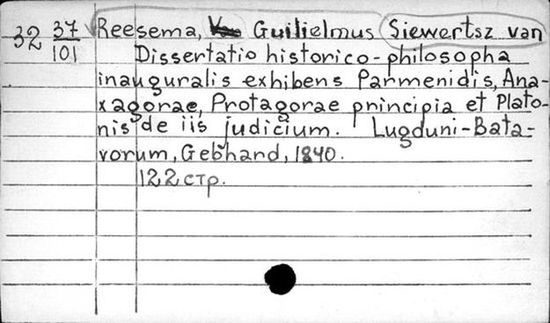 32 37/101 Reesema, Guilielmus Siewertsz van
Dissertatio historico-philosopha
inauguralis exhibens Parmenidis, Ana-
xagorae, Protagorae principia et Plato-
nis de iis judicium. Lugduni-Bata-
vorum, Gebhard, 1840.
122 стр.